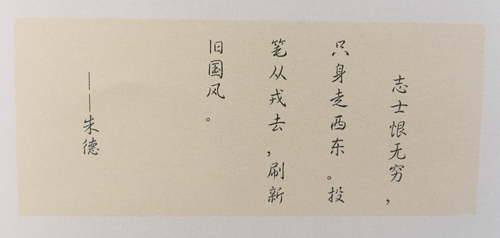 志士恨无穷，
只身走西东。投
笔从戎去，刷新
旧国风。
——朱德